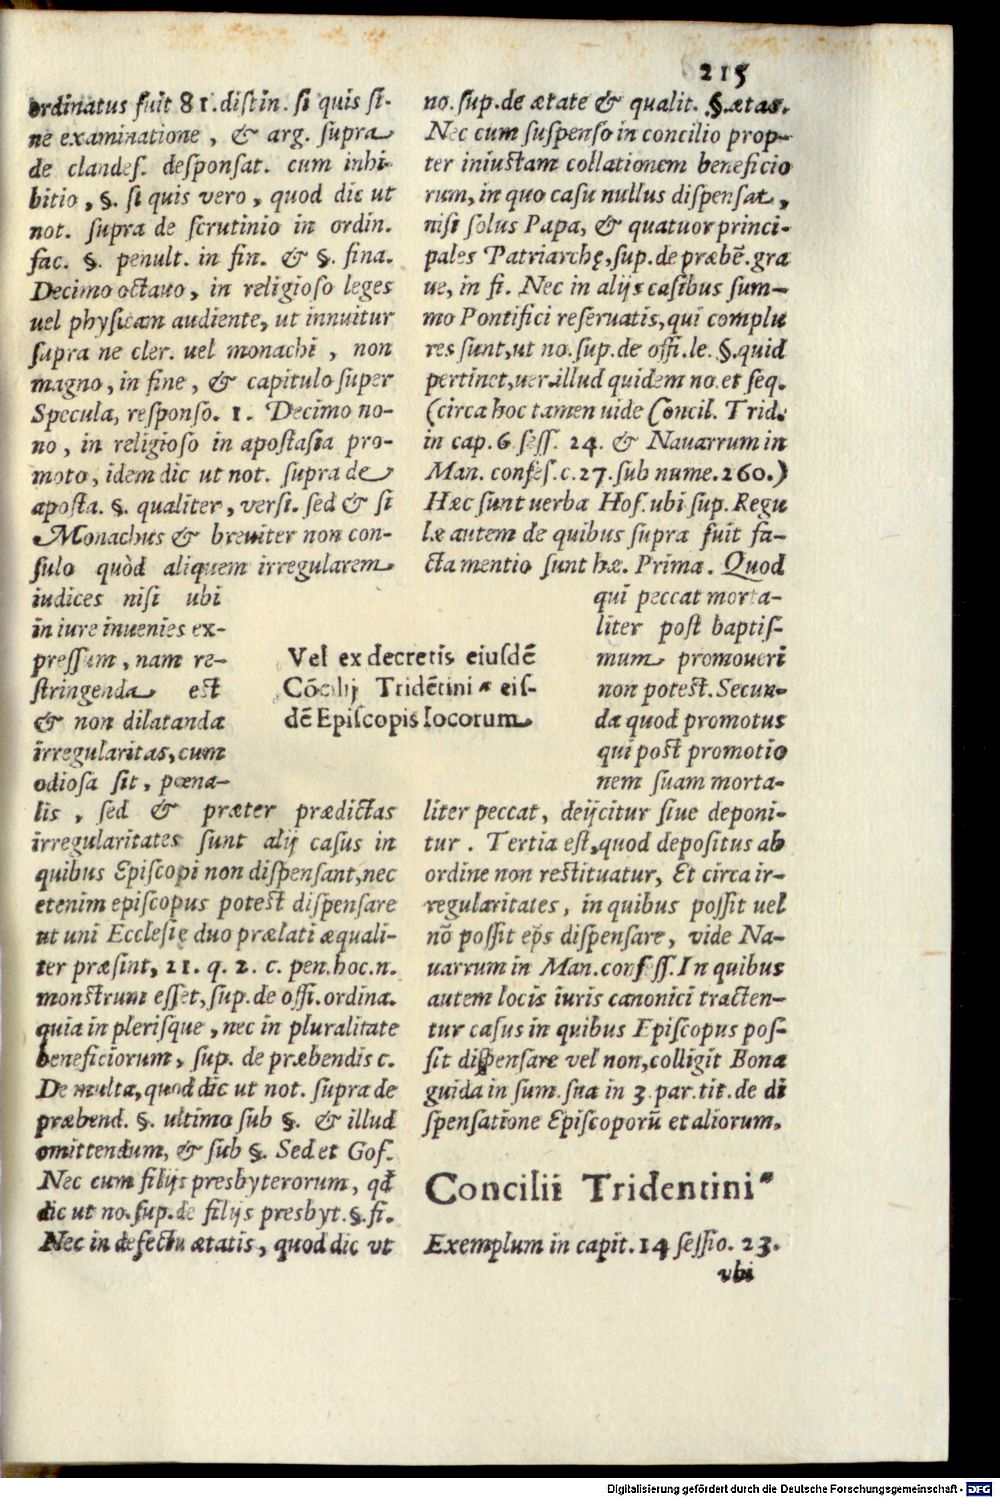 215
ordinatus fuit 81. distin. si quis si-
ne examinatione, & arg. supra
de clandes. desponsat. cum inhi-
bitio, §. si quis vero, quod dic ut
not. supra de scrutinio in ordin.
fac. §. penult. in fin. & §. fina.
Decimo octauo, in religioso leges
uel physicam audiente, ut innuitur
supra ne cler. uel monachi, non
magno, in fine, & capitulo super
Specula, responso. 1. Decimo no-
no, in religioso in apostasia pro-
moto, idem dic ut not. supra de
aposta. §. qualiter, versi. sed & si
Monachus & breuiter non con-
sulo quòd aliquem irregularem
iudices nisi ubi
in iure inuenies ex-
pressum, nam re-
stringenda est
& non dilatanda
irregularitas, cum
odiosa sit, pœna-
lis, sed & præter prædictas
irregularitates sunt alij casus in
quibus Episcopi non dispensant, nec
etenim episcopus potest dispensare
ut uni Ecclesię duo prælati æquali-
ter præsint, 21. q. 2. c. pen. hoc. n.
monstrum esset, sup. de offi. ordina.
quia in plerisque, nec in pluralitate
beneficiorum, sup. de præbendis c.
De multa, quod dic ut not. supra de
præbend. §. ultimo sub §. & illud
omittendum, & sub §. Sed et Gof.
Nec cum filijs presbyterorum, qđ
dic ut no. sup. de filijs presbyt. §. fi.
Nec in defectu ætatis, quod dic vt
Vel ex decretis eiusdē
Cōcilij Tridētini eis-
dē Episcopis locorum
no. sup. de ætate & qualit. §. ætas.
Nec cum suspenso in concilio prop-
ter iniustam collationem beneficio
rum, in quo casu nullus dispensat,
nisi solus Papa, & quatuor princi-
pales Patriarchę, sup. de præbē. gra
ue, in fi. Nec in alijs casibus sum-
mo Pontifici reseruatis, qui complu
res sunt, ut no. sup. de offi. le. §. quid
pertinet, uer. illud quidem no. et seq.
(circa hoc tamen uide Concil. Trid.
in cap. 6. sess. 24. & Nauarrum in
Man. confes. c. 27. sub nume. 260.)
Hæc sunt uerba Hos. ubi sup. Regu
læ autem de quibus supra fuit fa-
cta mentio sunt hæ. Prima. Quod
qui peccat morta-
liter post baptis-
mum promoueri
non potest. Secun-
da quod promotus
qui post promotio
nem suam morta-
liter peccat, deijcitur siue deponi-
tur. Tertia est, quod depositus ab
ordine non restituatur, Et circa ir-
regularitates, in quibus possit uel
nō possit eps̃ dispensare, vide Na-
uarrum in Man. confess. In quibus
autem locis iuris canonici tracten-
tur casus in quibus Episcopus pos-
sit dispensare vel non, colligit Bona
guida in sum. sua in 3. par. tit. de di
spensatione Episcoporū et aliorum.
Concilii Tridentini
Exemplum in capit. 14 sessio. 23.
vbi
Digitalisierung gefördert durch die Deutsche Forschungsgemeinschaft - DFG